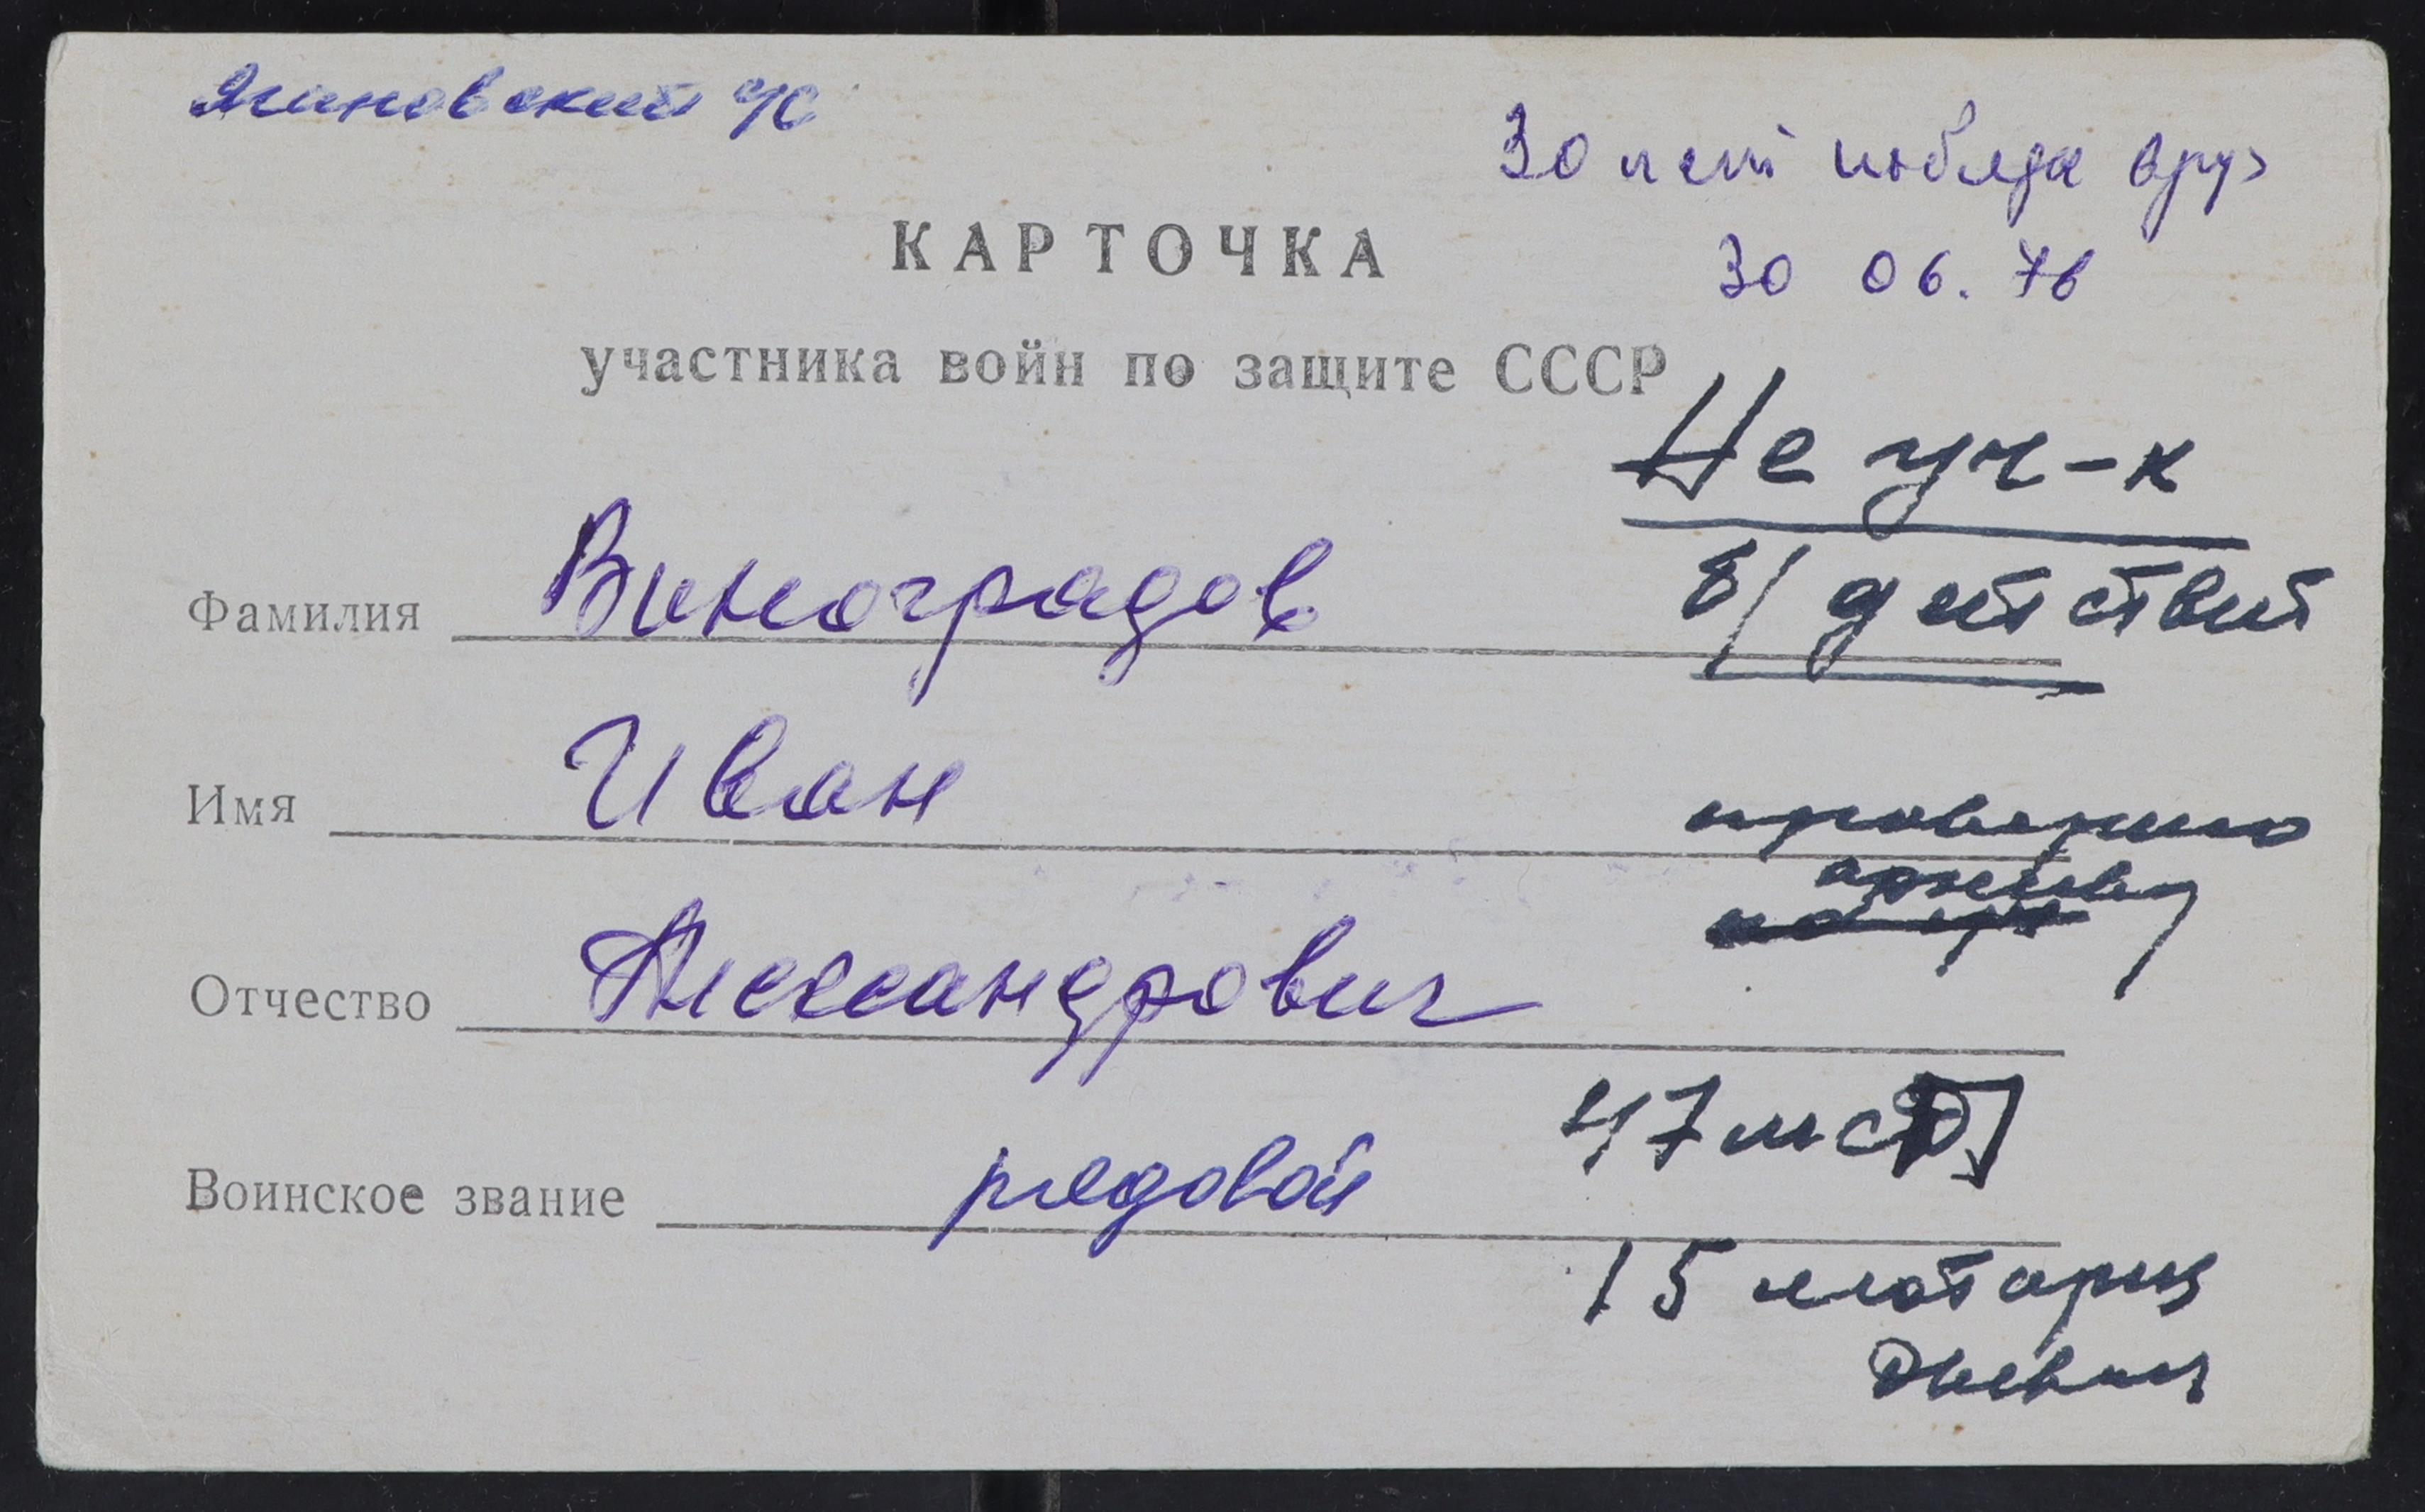 Ягиновский ч/с
30 лет победа вруч
30 06. 76
КАРТОЧКА
участника войн по защите СССР
Не уч-к
б/действий
Фамилия Виноградов
Имя Иван
проверено
архив
Отчество Александрович
47
Воинское звание рядовой
15